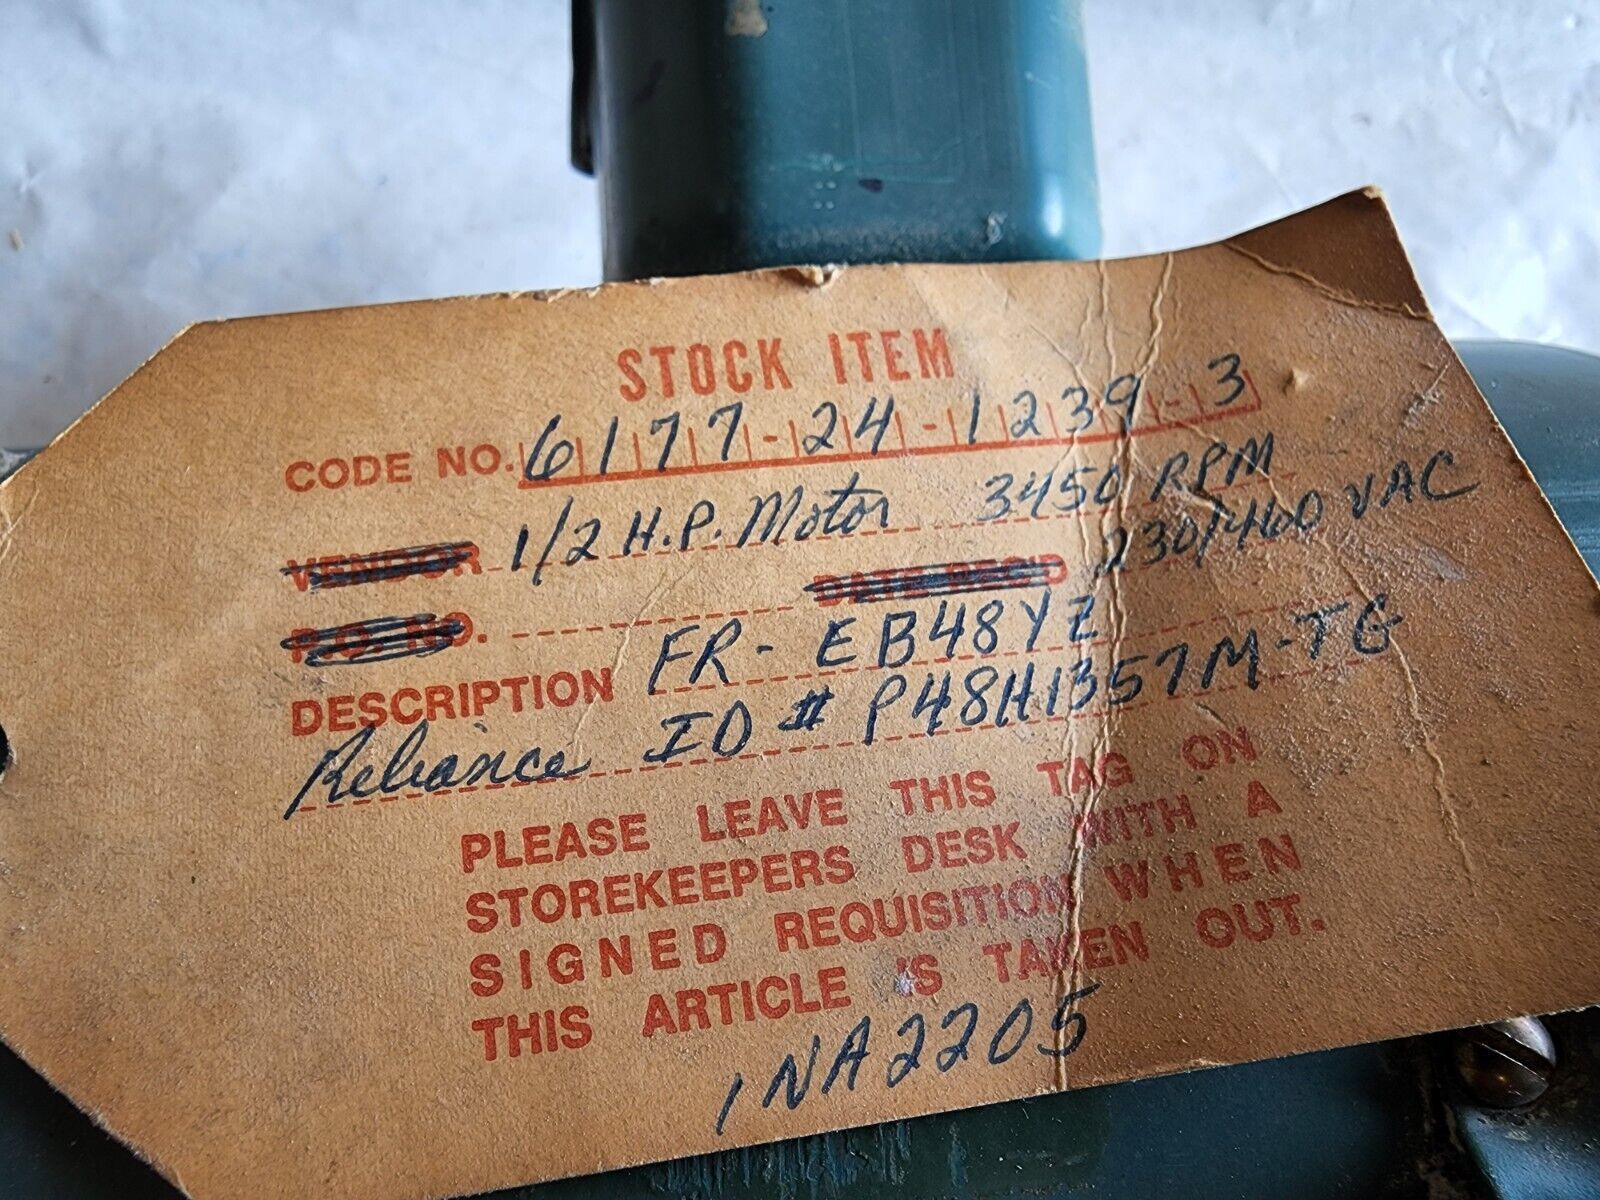 STOCK ITEM
CODE NO. 6177-24-1239-3
VENDOR 1/2 H.P. Motor 3450 RPM
P.O. NO. DATE REC'D 230/460 VAC
DESCRIPTION FR- EB48YZ
Reliance ID # P48H1357M-TG
PLEASE LEAVE THIS TAG ON
STOREKEEPERS DESK WITH A
SIGNED REQUISITION WHEN
THIS ARTICLE IS TAKEN OUT.
1NA2205